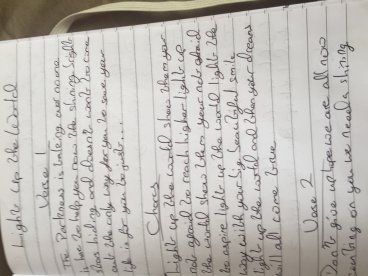 Light Up the World
Verse 1
The Darkness is taking over no one
is here to help you now the shining light
stars hiding and doesn't want to come
out the only way for you to save your
life is for you to just....
Chorus
Light up the world show them your
not afraid to reach higher light up
the world show them your not afraid
to aspire light up the world light the
way with your big beautiful smile
light up the world and then your dreams
will all come true
Verse 2
Don't give up hope we are all now
counting on you we need a shining